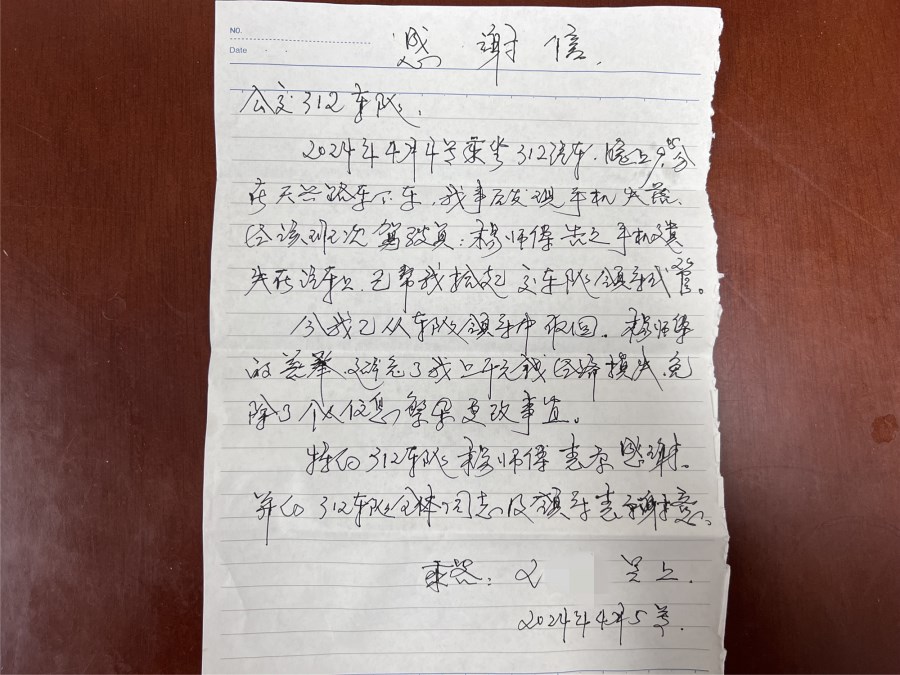 NO.
Date
感谢信
公交312车队：
2024年4月4号乘坐312汽车.晚上9点分
在天兴路车下车，我事后发现手机失落.
经该班次驾驶员：穆师傅告之手机遗
失在汽车上.已帮我捡起交车队领导代管。
今我已从车队领导中取回.穆师傅
的善举.避免了我上千元钱经济损失.免
除了个人信息繁果更改事宜。
特向312车队穆师傅表示感谢.
并向312车队全体同志及领导表示谢意.
乘客： 呈上.
2024年4月5号.